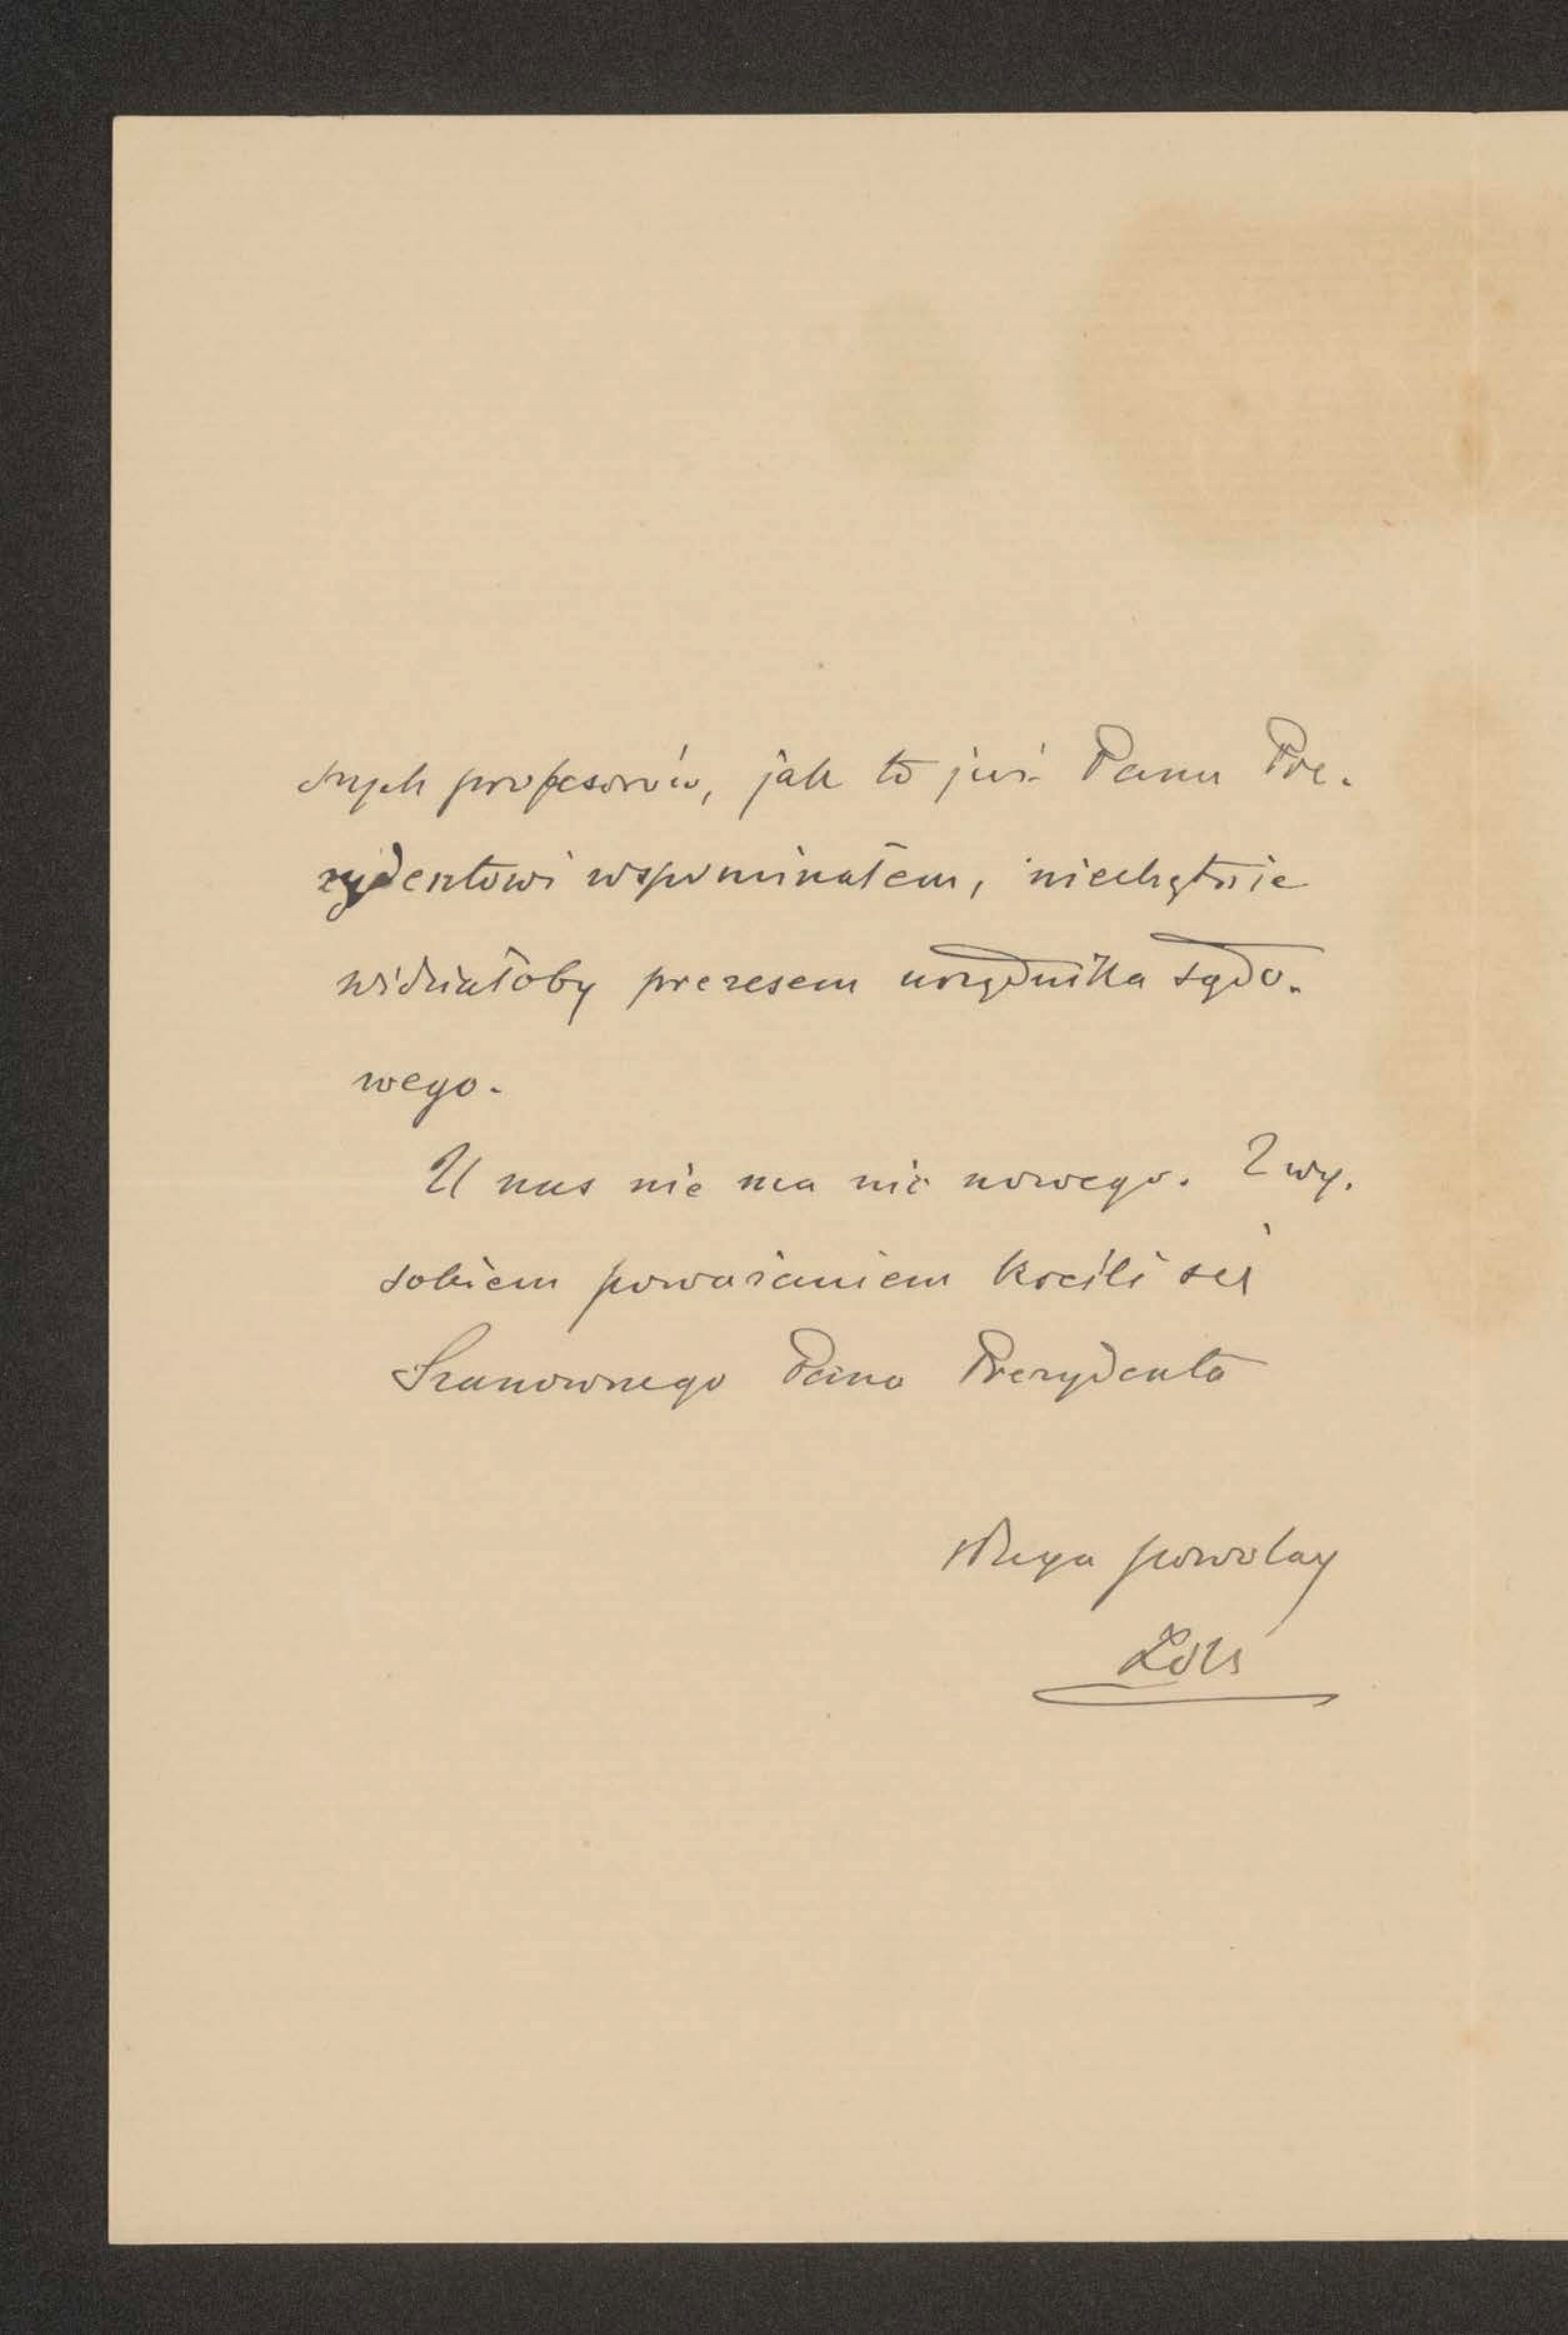 snych profesorów, jak to już Panu Pre-
zydentowi wspominałem, niechętnie
widziałoby prezesem urzędnika sądo-
wego.
U nas nie ma nic nowego. Z wy-
sokiem poważaniem kreśli się
Szanownego Pana Prezydenta
sługa powolny
Zoll